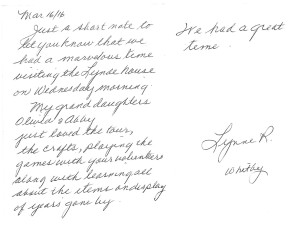 Mar 16/16
Just a short note to
let you know that we
had a marvelous time
visiting the Lynde House
on Wednesday morning.
My grand daughters
Olivia & Abby
just loved the tour,
the crafts, playing the
games with your volunteers
along with learning all
about the items on display
of years gone by.
We had a great
time.
Lynne R.
Whitby